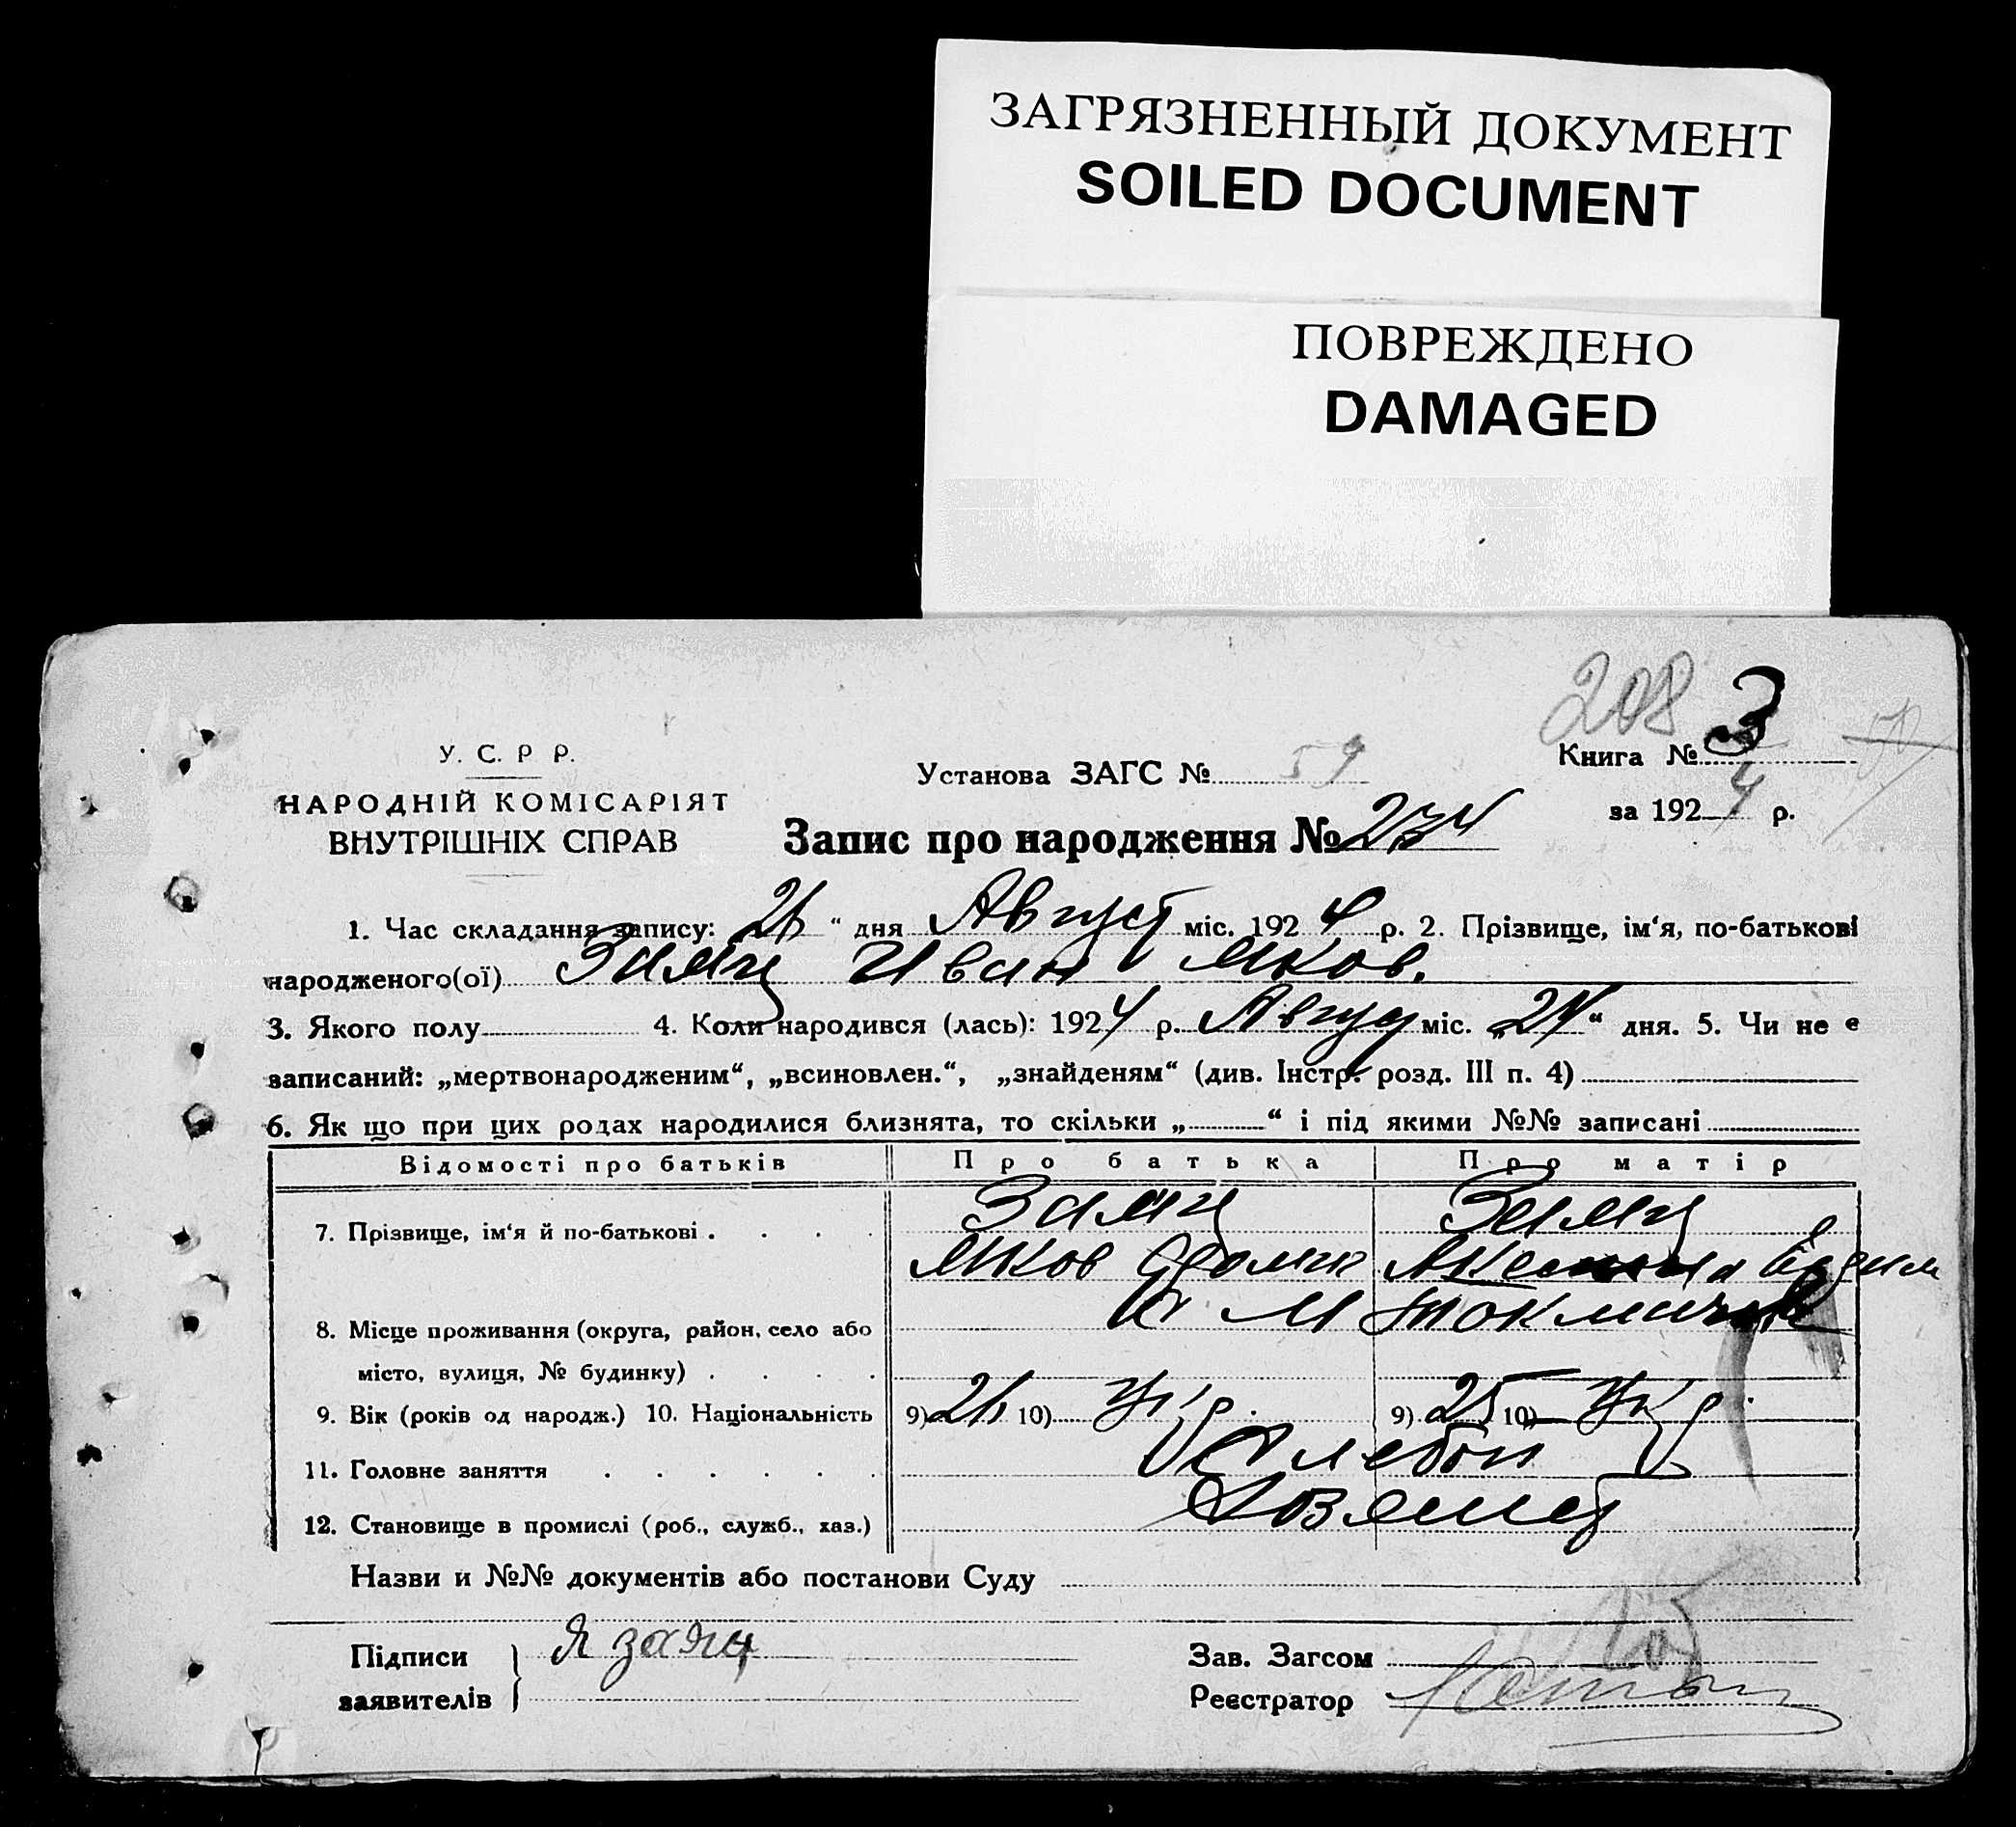 ЗАГРЯЗНЕННЫЙ ДОКУМЕНТ
SOILED DOCUMENT
ПОВРЕЖДЕНО
DAMAGED
208 3
У. С. Р Р.
Установа ЗАГС № 59
Книга №
НАРОДНІЙ КОМІСАРІЯТ
ВНУТРІШНІХ СПРАВ
за 1924 р.
Запис про народження № 234
1. Час складання запису: 26 “ дня Август міс. 1924 р. 2. Прізвище, ім‘я, по-батькові
народженого(ої) Заяц Иван Яков.
3. Якого полу 4. Коли народився (лась): 1924 р. Август міс. „24“ дня. 5. Чи не є
записаний: „мертвонародженим“, „всиновлен.“, „знайденям“ (див. Інстр. розд. III п. 4)
6. Як що при цих родах народилися близнята, то скільки „ “ і під якими №№ записані
Відомості про батьків Про батька Про матір
7. Прізвище, ім‘я й по-батькові . . . . Заяц Заяц
Яков
8. Місце проживання (округа, район, село або М Токмачка
місто, вулиця, № будинку) . . . .
9. Вік (років од народж.) 10. Національність 9) 26 10) Укр. 9) 25 10) Укр.
11. Головне заняття . . . . . . Хлебоп
12. Становище в промислі (роб., служб., хаз.) Хозяин
Назви и №№ документів або постанови Суду
Підписи Я заяц
заявителів
Зав. Загсом
Реєстратор